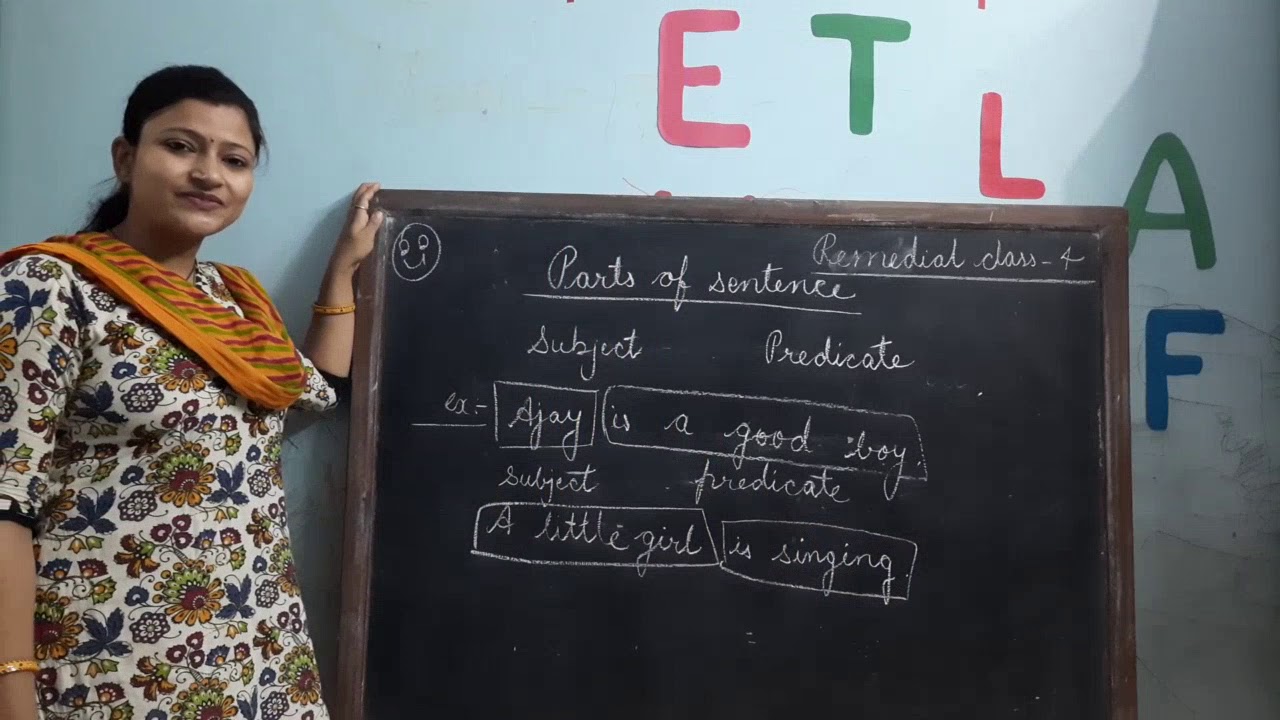 E T
L
A
F
Remedial class-4
Parts of sentence
Subject Predicate
ex:- Ajay is a good boy.
subject predicate
A little girl is singing.